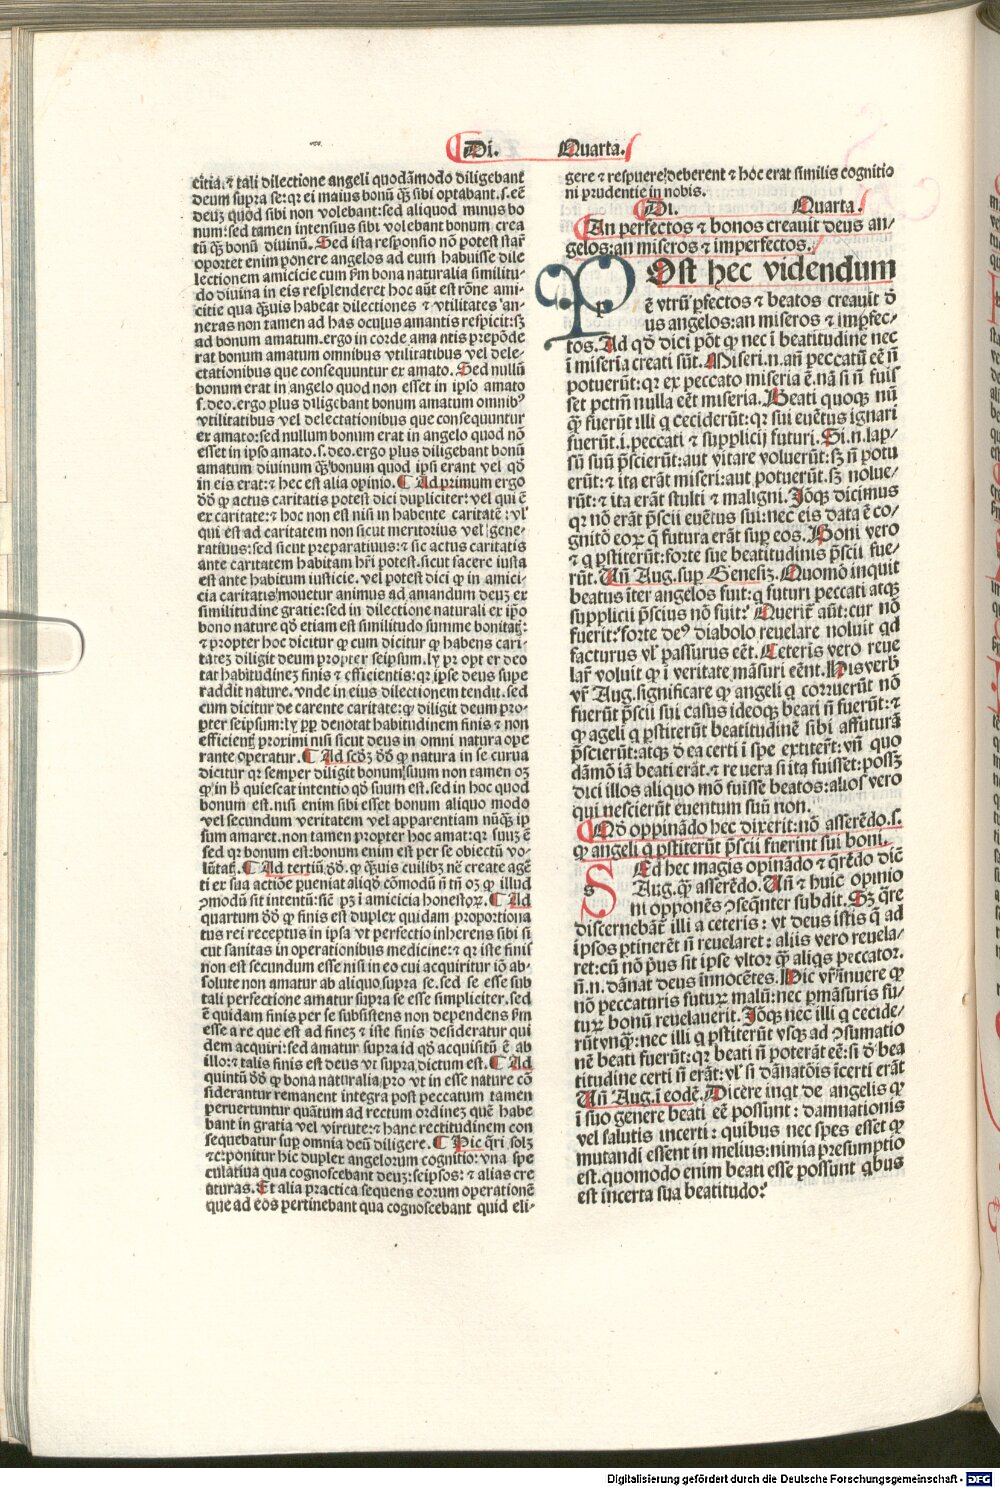 Di. Quarta.
citia. ⁊ tali dilectione angeli quodāmodo diligebant
deum supra se: qꝛ ei maius bonū qƺ sibi optabant. s. eē
deuƺ quod sibi non volebant: sed aliquod minus bo
num: sed tamen intensius sibi volebant bonum crea
tū qƺ bonū diuinū. Sed ista responsio nō potest star̄
oportet enim ponere angelos ad eum habuisse dile
lectionem amicicie cum ẜm bona naturalia similitu-
do diuina in eis resplenderet hoc aūt est rōne ami-
citie qua qƺuis habeat dilectiones ⁊ vtilitates an-
neras non tamen ad has oculus amantis respicit: sƺ
ad bonum amatum. ergo in corde ama ntis prepōde
rat bonum amatum omnibus vtilitatibus vel dele-
ctationibus que consequuntur ex amato. Sed nullū
bonum erat in angelo quod non esset in ipso amato
s. deo. ergo plus diligebant bonum amatum omnibꝰ
vtilitatibus vel delectationibus que consequuntur
ex amato: sed nullum bonum erat in angelo quod nō
esset in ipso amato. s. deo. ergo plus diligebant bonū
amatum diuinum qƺ bonum quod ipsi erant vel qd̄
in eis erat: ⁊ hec est alia opinio. ¶ Ad primum ergo
dd̄ ꝙ actus caritatis potest dici dupliciter: vel qui ē
ex caritate: ⁊ hoc non est nisi in habente caritatē: vl̓
qui est ad caritatem non sicut meritorius vel gene-
ratiuus: sed sicut preparatiuus: ⁊ sic actus caritatis
ante caritatem habitam hr̄i potest. sicut facere iusta
est ante habitum iusticie. vel potest dici ꝙ in amici-
cia caritatis mouetur animus ad amandum deuƺ ex
similitudine gratie: sed in dilectione naturali ex ip̄o
bono nature qd̄ etiam est similitudo summe bonitat̄:
⁊ propter hoc dicitur ꝙ cum dicitur ꝙ habens cari
tateƺ diligit deum propter seipsum. ly pr opt er deo
tat habitudineƺ finis ⁊ efficientis: qꝛ ipse deus supe
raddit nature. vnde in eius dilectionem tendit. sed
cum dicitur de carente caritate: ꝙ diligit deum pro-
pter seipsum: ly ꝓp denotat habitudinem finis ⁊ non
efficient̄ proximi nisi sicut deus in omni natura ope
rante operatur. ¶ Ad scd̄ƺ dd̄ ꝙ natura in se curua
dicitur qꝛ semper diligit bonum suum non tamen oƺ
ꝙ in h̄ quiescat intentio qd̄ suum est. sed in hoc quod
bonum est. nisi enim sibi esset bonum aliquo modo
vel secundum veritatem vel apparentiam nūqƺ ip
sum amaret. non tamen propter hoc amat: qꝛ suuƺ ē
sed qꝛ bonum est: bonum enim est per se obiectū vo-
lūtat̄. ¶ Ad tertiū dd̄. ꝙ qƺuis cuilibƺ nē create agē
ti ex sua actiōe ꝓueniat aliqd̄ cōmodū n̄ tn̄ oƺ ꝙ illud
ꝯmodū sit intentū: sic̄ pƺ i amicicia honestoꝝ. ¶ Ad
quartum dd̄ ꝙ finis est duplex quidam proportiona
tus rei receptus in ipsa vt perfectio inherens sibi si
cut sanitas in operationibus medicine: ⁊ qꝛ iste finis
non est secundum esse nisi in eo cui acquiritur iō ab-
solute non amatur ab aliquo supra se. sed se esse sub
tali perfectione amatur supra se esse simpliciter. sed
ē quidam finis per se subsistens non dependens ẜm
esse a re que est ad fineƺ ⁊ iste finis desideratur qui
dem acquiri: sed amatur supra id qd̄ acquisitū ē ab
illo: ⁊ talis finis est deus vt supra dictum est. ¶ Ad
quintū dd̄ ꝙ bona naturalia pro vt in esse nature cō
siderantur remanent integra post peccatum tamen
peruertuntur quātum ad rectum ordineƺ quē habe
bant in gratia vel virtute: ⁊ hanc rectitudinem con
sequebatur sup omnia deū diligere. ¶ Hic q̄ri solƺ
⁊c. ponitur hic duplex angelorum cognitio: vna spe
culatiua qua cognoscebant deuƺ: seipsos: ⁊ alias cre
aturas. Et alia practica sequens eorum operationē
que ad eos pertinebant qua cognoscebant quid eli-
gere ⁊ respuere deberent ⁊ hoc erat similis cognitio
ni prudentie in nobis.
Di. Quarta.
An perfectos ⁊ bonos creauit deus an-
gelos: an miseros ⁊ imperfectos.
POst hec videndum
ē vtrū ꝑfectos ⁊ beatos creauit d̄
us angelos: an miseros ⁊ imꝑfec-
tos. Ad qd̄ dici pōt ꝙ nec i beatitudine nec
i miseria creati sūt. Miseri. n. an̄ peccatū eē n̄
potuerūt: qꝛ ex peccato miseria ē. nā si n̄ fuis
set pctm̄ nulla eēt miseria. Beati quoqƺ nū
qƺ fuerūt illi q ceciderūt: qꝛ sui euētus ignari
fuerūt. i. peccati ⁊ supplicij futuri. Si. n. lap-
sū suū p̄scierūt: aut vitare voluerūt: sƺ n̄ potu
erūt: ⁊ ita erāt miseri: aut potuerūt. sƺ nolue-
rūt: ⁊ ita erāt stulti ⁊ maligni. Jōqƺ dicimus
qꝛ nō erāt p̄scij euētus sui: nec eis data ē co-
gnitō eoꝝ q̄ futura erāt suꝑ eos. Boni vero
⁊ q ꝑstiterūt: forte sue beatitudinis p̄scij fue-
rūt. Un̄ Aug. suꝑ Genesiƺ. Quomō inquit
beatus iter angelos fuit: q futuri peccati atqƺ
supplicij p̄scius nō fuit: Querit̄ aūt: cur nō
fuerit: forte deꝰ diabolo reuelare noluit qd
facturus vl̓ passurus eēt. Ceteris vero reue
lar̄ voluit ꝙ i veritate māsuri eēnt. His verb̄
vr̄ Aug. significare ꝙ angeli q corruerūt nō
fuerūt p̄scij sui casus ideoqƺ beati n̄ fuerūt: ⁊
ꝙ ageli q ꝑstiterūt beatitudinē sibi affuturā
p̄scierūt: atqƺ d̄ ea certi i spe extiterr̄: vn̄ quo
dāmō iā beati erāt. ⁊ re uera si ita fuisset: possƺ
dici illos aliquo mō fuisse beatos: alios vero
qui nescierūt euentum suū non.
Qd̄ oppinādo hec dixerit: nō asserēdo. s.
ꝙ angeli q ꝑstiterūt p̄scij fuerint sui boni.
SEd hec magis opinādo ⁊ q̄rēdo dic̄
Aug. qƺ asserēdo. Un̄ ⁊ huic opinio
ni opponēs ꝯseqn̄ter subdit. Sƺ q̄re
discernebāt̄ illi a ceteris: vt deus istis q̄ ad
ipsos ꝑtinerēt n̄ reuelaret: aliis vero reuela-
ret: cū nō p̄us sit ipse vltor qƺ aliqs peccator.
n̄. n. dānat deus innocētes. Hic vr̄ innuere ꝙ
nō peccaturis futuꝝ malū: nec ꝑmāsuris fu-
tuꝝ bonū reuelauerit. Jōqƺ nec illi q cecide-
rūt vnqƺ: nec illi q ꝑstiterūt vsqƺ ad ꝯsumatio
nē beati fuerūt: qꝛ beati n̄ poterāt eē: si d̄ bea
titudine certi n̄ erāt: vl̓ si dānatōis icerti erāt
Un̄ Aug. i eodē. Dicere inqt de angelis ꝙ
i suo genere beati eē possunt: damnationis
vel salutis incerti: quibus nec spes esset ꝙ
mutandi essent in melius: nimia presumptio
est. quomodo enim beati esse possunt qbus
est incerta sua beatitudo:
Digitalisierung gefördert durch die Deutsche Forschungsgemeinschaft - DFG